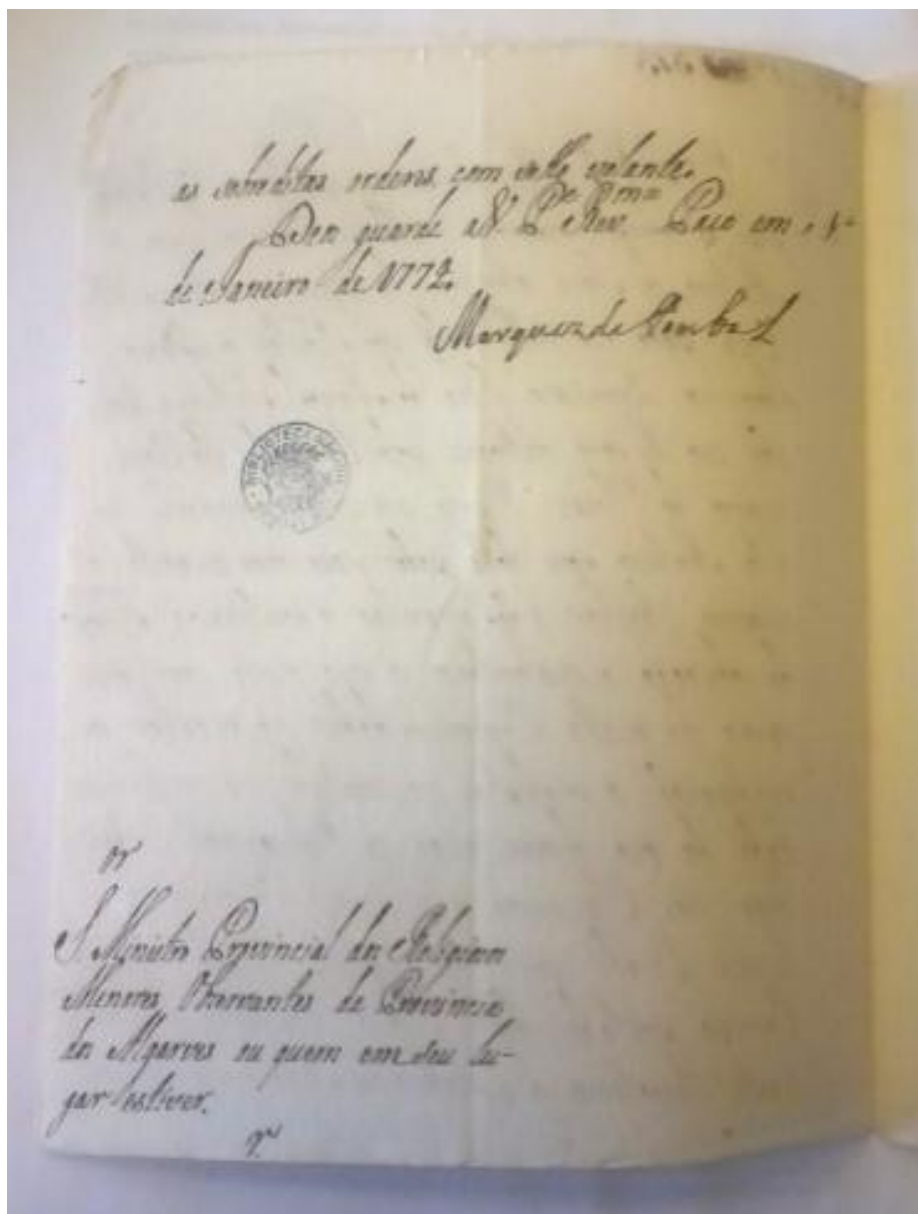 as sobreditas ordens com sello volante.
Deos guarde a V. P.e Rev.ma Paço em
de Janeiro de 1772.
Marquez de Pombal
BIBLIOTECA
S.or Ministro Provincial dos Religiosos
Menores Observantes da Provincia
dos Algarves ou quem em seu lu-
gar estiver.